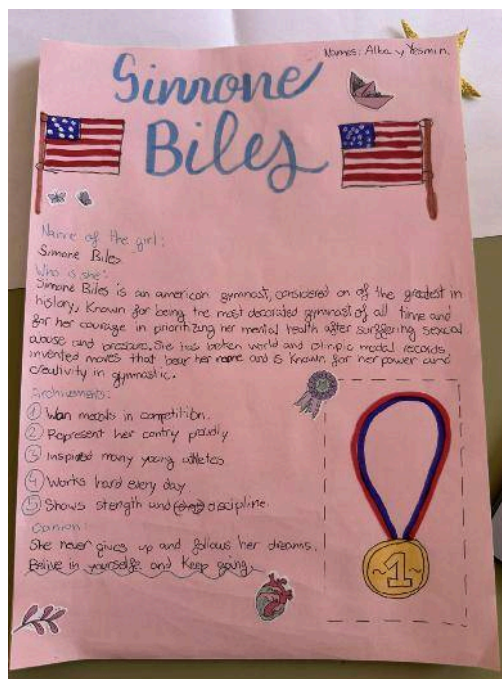 Names: Alba y Yesmin.
Simone
Biles
Name of the girl:
Simone Biles
Who is she?
Simone Biles is an american gymnast, considered on of the greatest in
history. Known for being the most decorated gymnast of all time and
for her courage in prioritizing her mental health after surffering sexual
abuse and pressure. She has broken world and olimpic medal records,
invented moves that bear her name and is known for her power and
creativity in gymnastic.
Archivements:
1 Wan medals in competition.
2 Represent her contry proudly
3 Inspired many young athletes
4 Works hard every day
5 Shows stength and discipline.
Opinion:
She never gives up and follows her dreams.
Belive in yourself and Keep going.
1